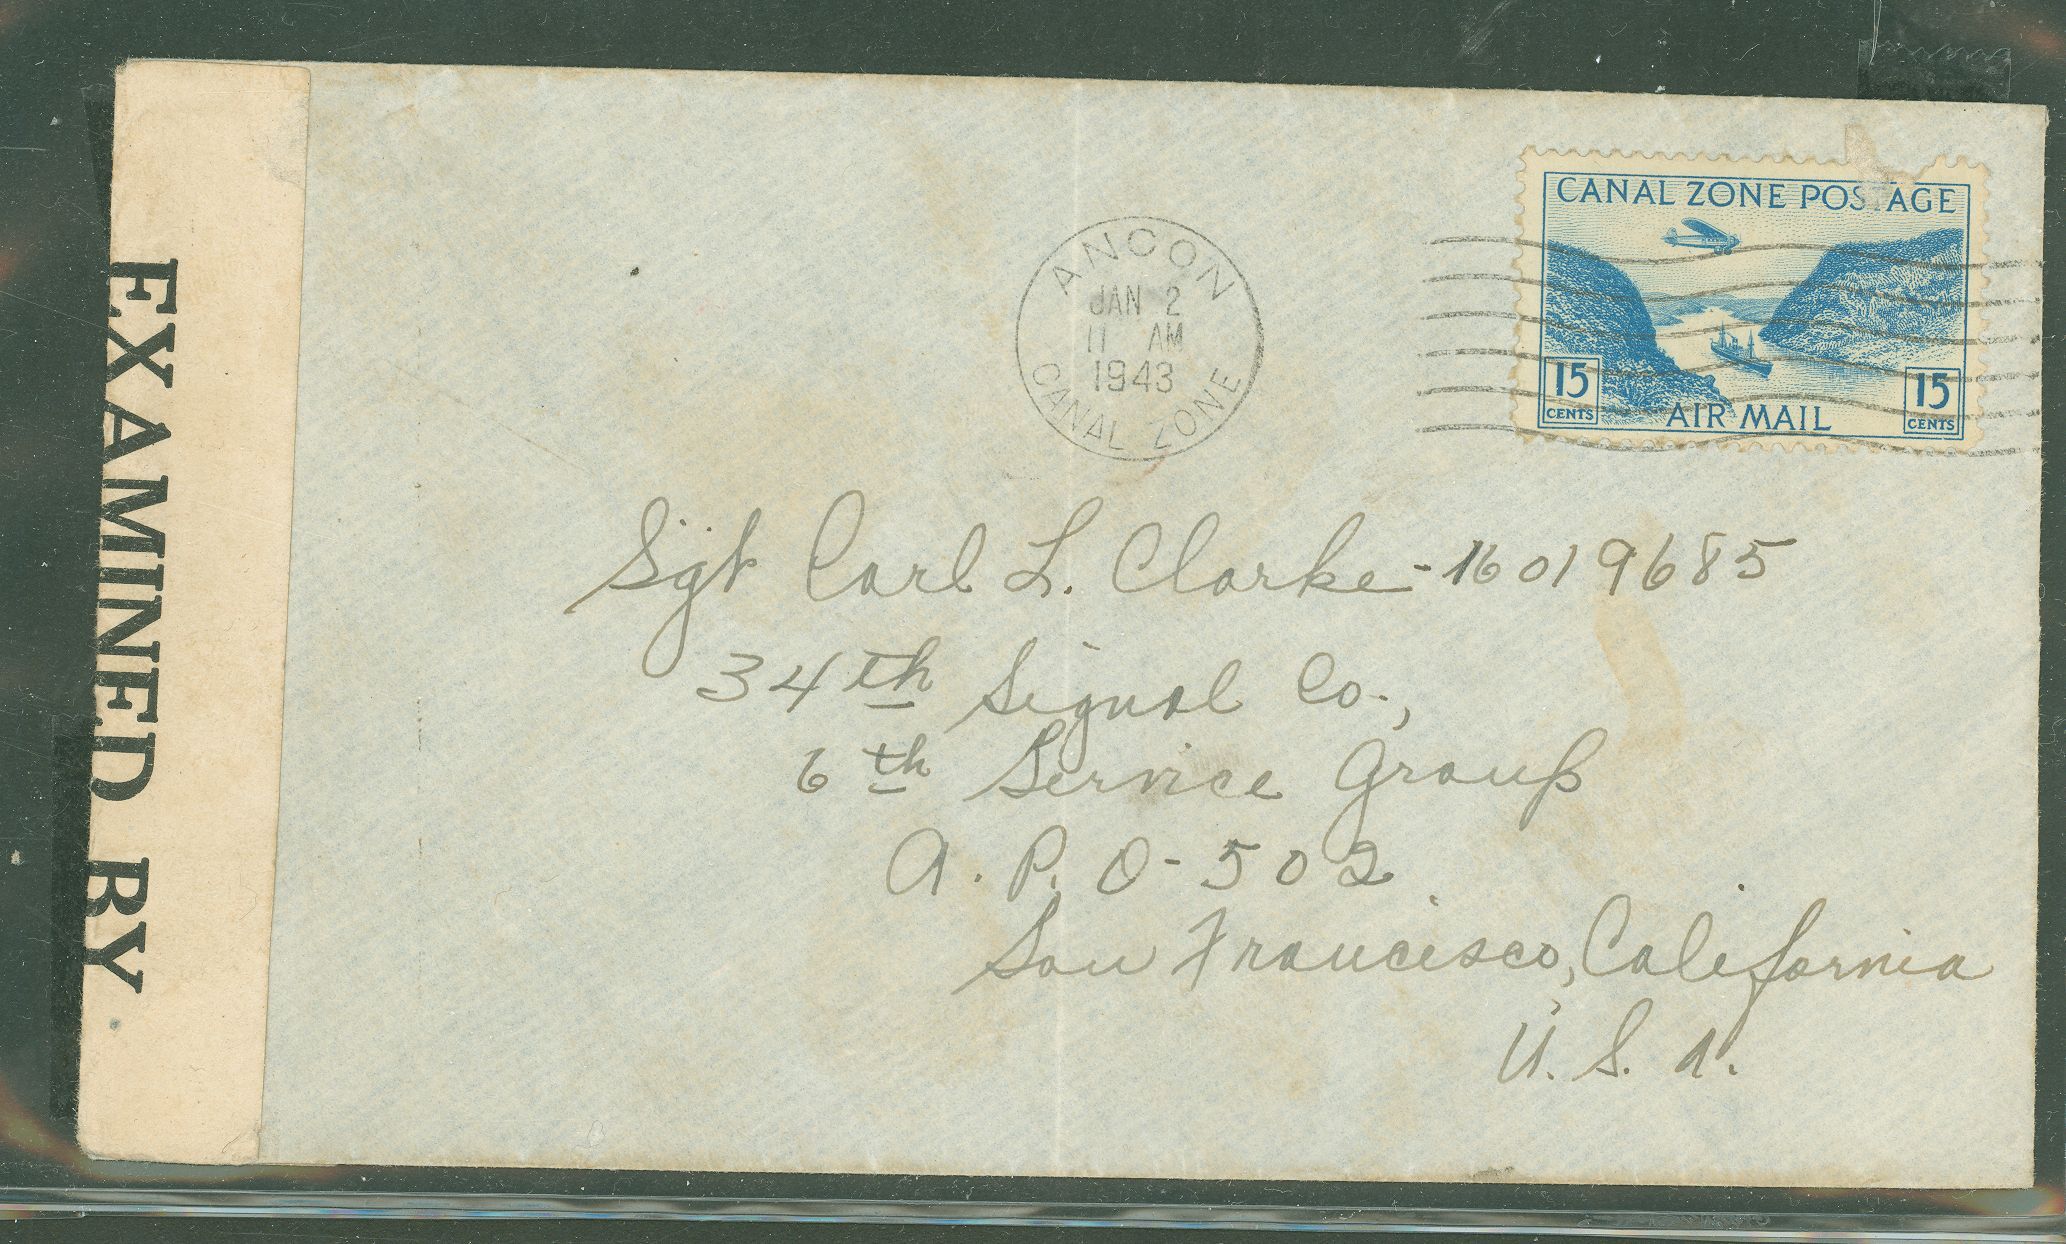 EXAMINED BY
ANCON
JAN 2
11 AM
1943
CANAL ZONE
CANAL ZONE POSTAGE
15
CENTS
AIR MAIL
15
CENTS
Sgt Carl L. Clarke - 16019685
34th Signal Co.,
6th Service Group
A.P.O-502
San Francisco, California
U.S.A.